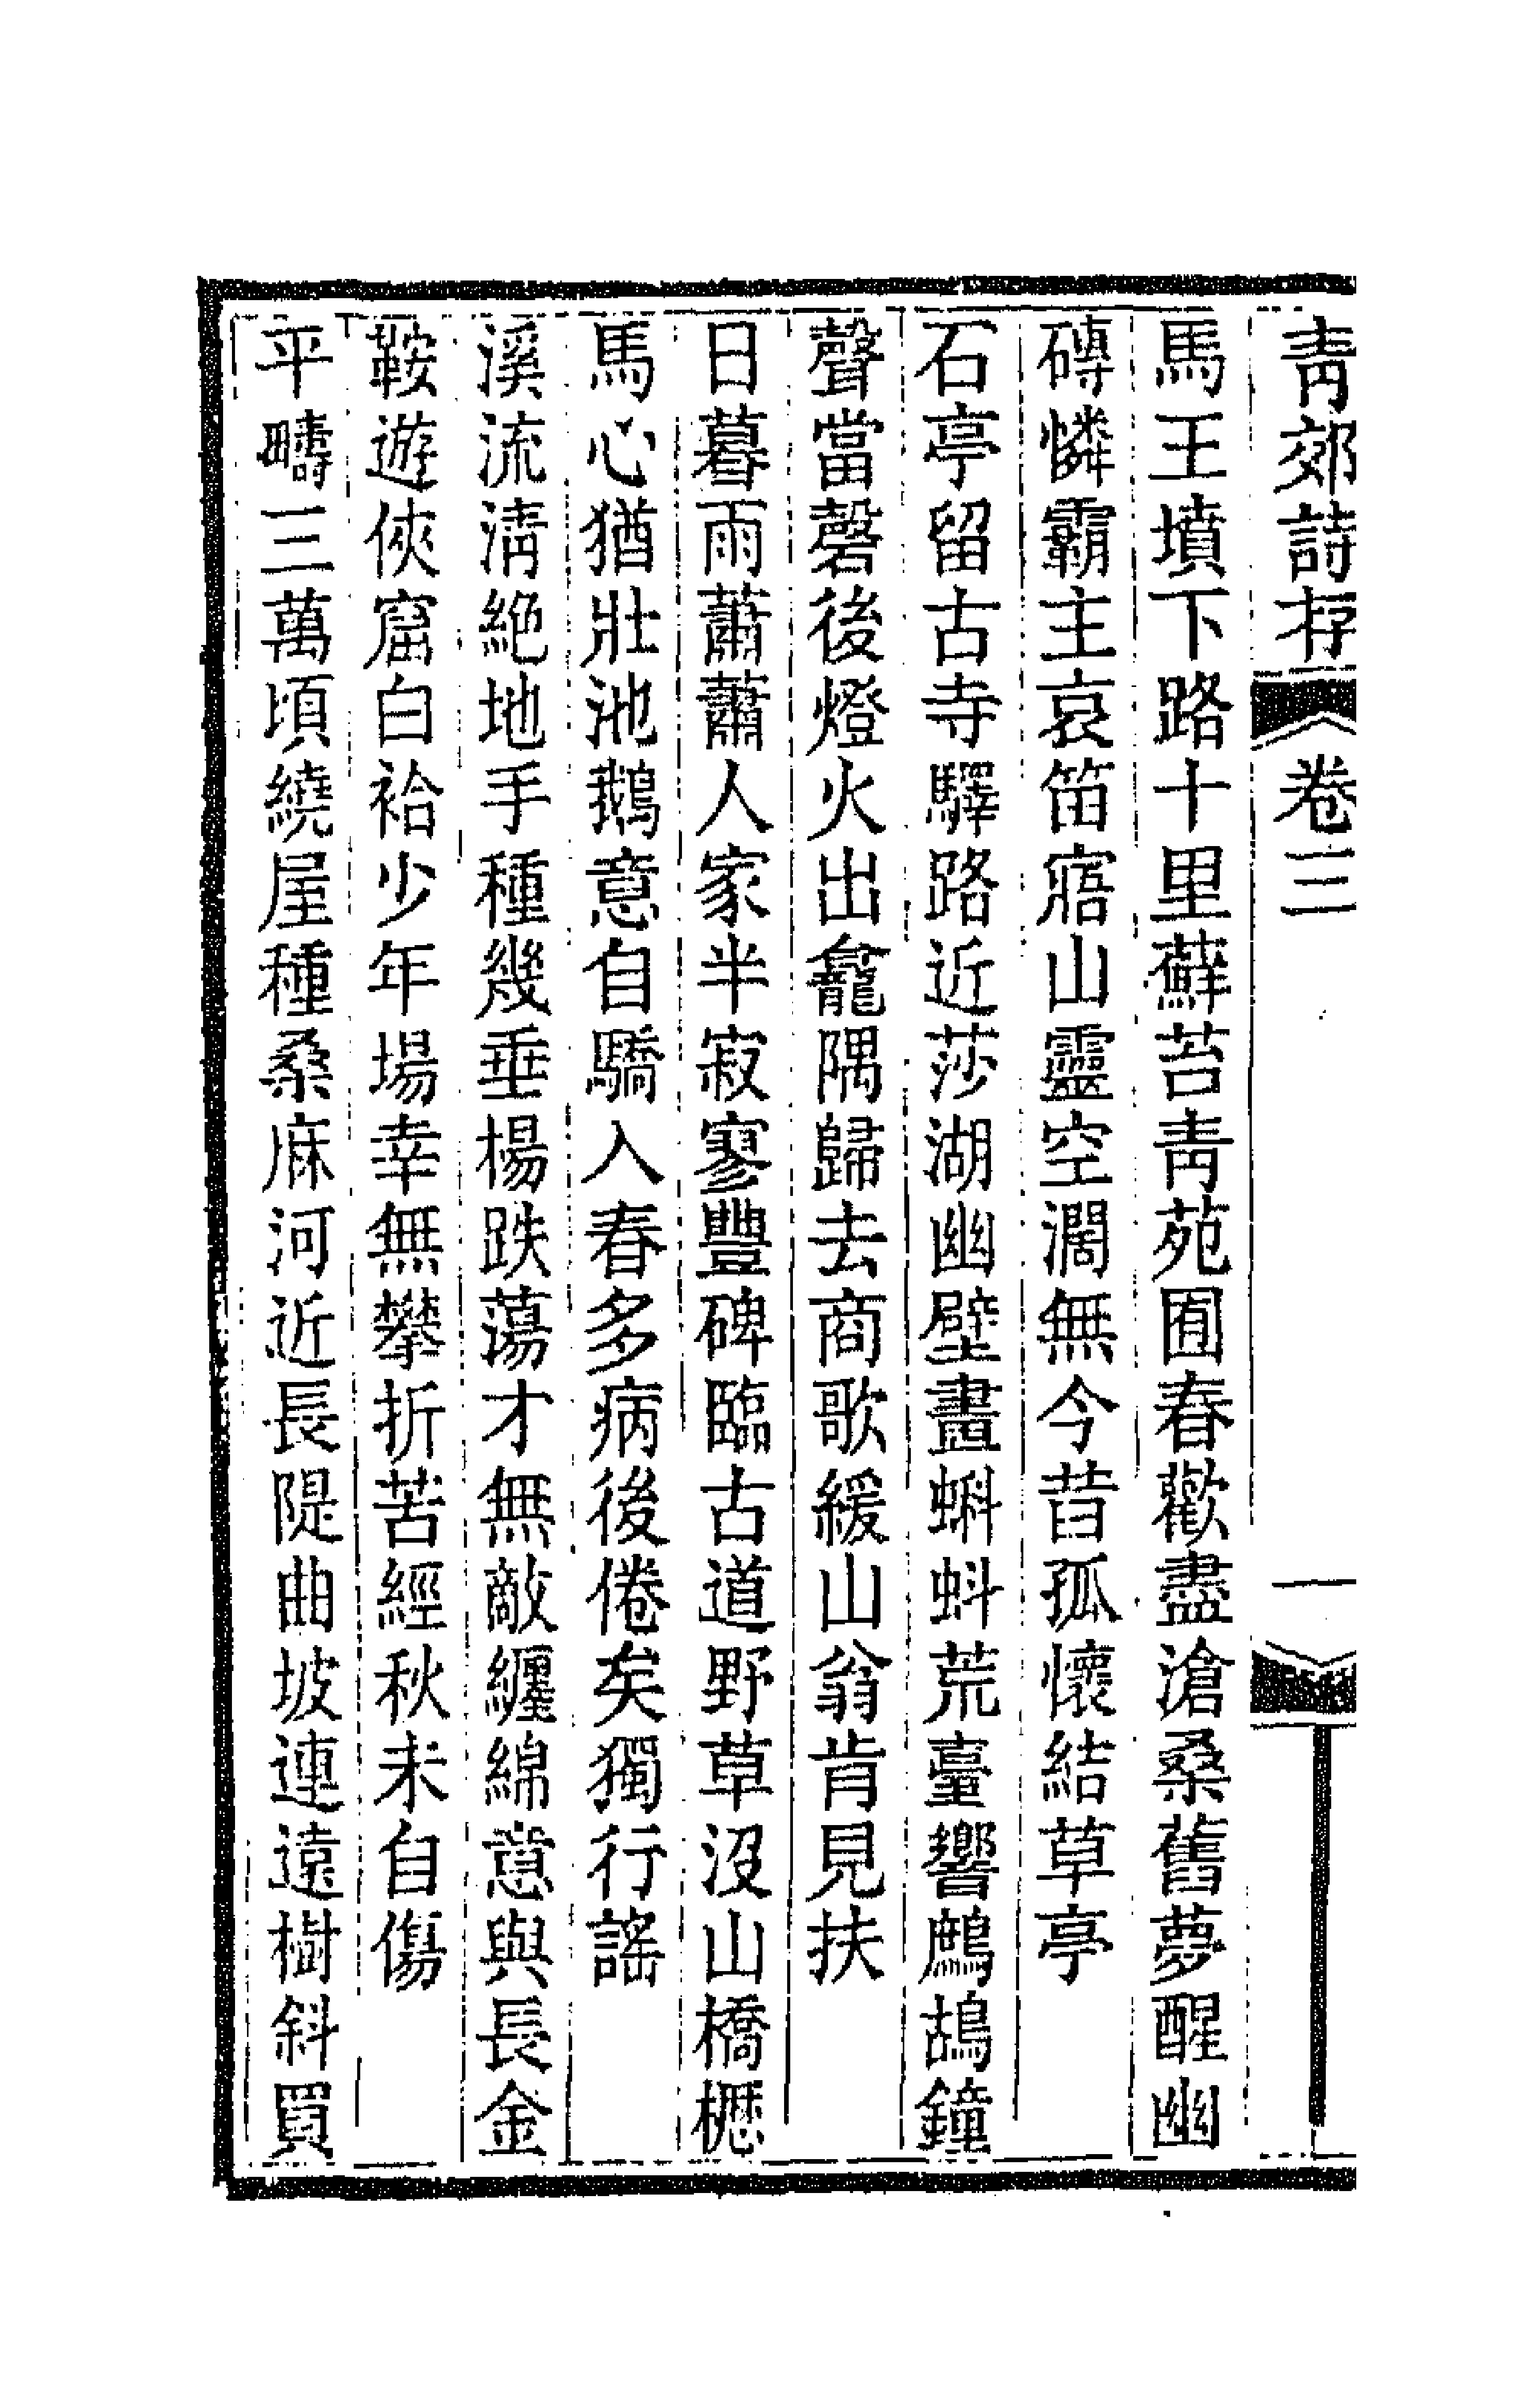 靑郊詩存 卷三 一
馬王墳下路十里蘚苔靑苑囿春歡盡滄桑舊夢醒幽
磚憐霸主哀笛寤山靈空濶無今昔孤懷結草亭
石亭留古寺驛路近莎湖幽壁畫蝌蚪荒臺響鷓鴣鐘
聲當磬後燈火出龕隅歸去商歌緩山翁肯見扶
日暮雨蕭蕭人家半寂寥豐碑臨古道野草沒山橋櫪
馬心猶壯池鵝意自驕入春多病後倦矣獨行謠
溪流淸絶地手種幾垂楊跌蕩才無敵纏綿意與長金
鞍遊俠窟白袷少年場幸無攀折苦經秋未自傷
平疇三萬頃繞屋種桑麻河近長隄曲坡連遠樹斜買